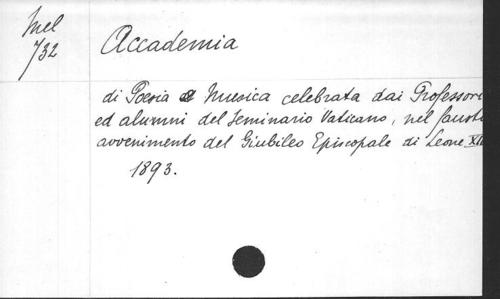 Mel
732
Accademia
di Poesia e Musica celebrata dai Professori
ed alumni del Seminario Vaticano, nel fausto
avvenimento del Giubileo Episcopale di Leone XIII
1893.